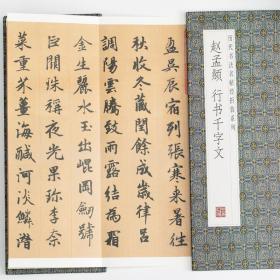 赵孟頫 行书千字文
盈昃辰宿列張寒来暑往
秋收冬藏閏餘成歲律呂
調陽雲騰致雨露結為霜
金生麗水玉出崐岡劒號
巨闕珠稱夜光果珎李柰
菜重芥薑海鹹河淡鱗潛